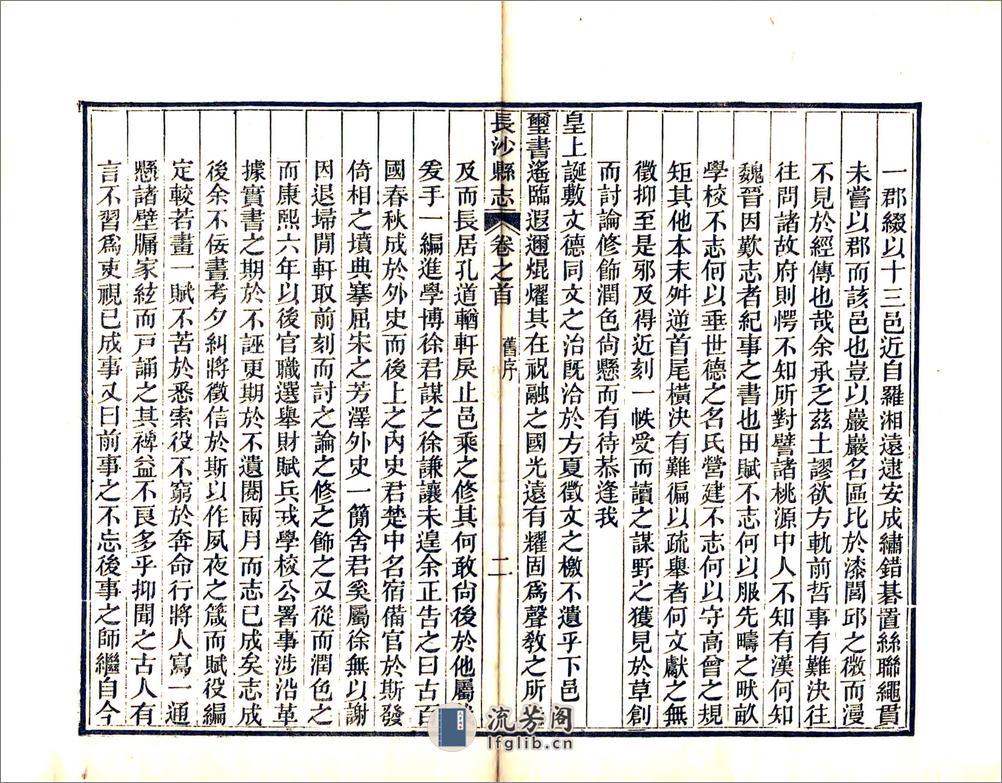 一郡綴以十三邑近自羅湘遠逮安成繡錯碁置絲聯繩貫
未嘗以郡而該邑也豈以巖巖名區比於漆閭邱之微而漫
不見於經傳也哉余承乏茲土謬欲方軌前哲事有難決往
往問諸故府則愕不知所對譬諸桃源中人不知有漢何知
魏晉因歎志者紀事之書也田賦不志何以服先疇之畎畝
學校不志何以垂世德之名氏營建不志何以守高曾之規
矩其他本末舛逆首尾橫決有難徧以疏舉者何文獻之無
徵抑至是邪及得近刻一帙受而讀之謀野之獲見於草創
而討論修飾潤色尚懸而有待恭逢我
皇上誕敷文德同文之治既洽於方夏徵文之檄不遺乎下邑
璽書遙臨遐邇焜燿其在祝融之國光遠有耀固爲聲敎之所
長沙縣志 卷之首 舊序 二
及而長居孔道輶軒戾止邑乘之修其何敢尚後於他屬
爰手一編進學博徐君謀之徐謙讓未遑余正告之曰古百
國春秋成於外史而後上之內史君楚中名宿備官於斯發
倚相之墳典搴屈宋之芳澤外史一簡舍君奚屬徐無以謝
因退埽閒軒取前刻而討之論之修之飾之又從而潤色之
而康熙六年以後官職選舉財賦兵戎學校公署事涉沿革
據實書之期於不誣更期於不遺閱兩月而志已成矣志成
後余不佞晝考夕糾將徵信於斯以作夙夜之箴而賦役編
定較若畫一賦不苦於悉索役不窮於奔命行將人寫一通
懸諸壁牖家絃而戶誦之其裨益不良多乎抑聞之古人有
言不習爲吏視已成事又曰前事之不忘後事之師繼自今
流芳阁
lfglib.cn